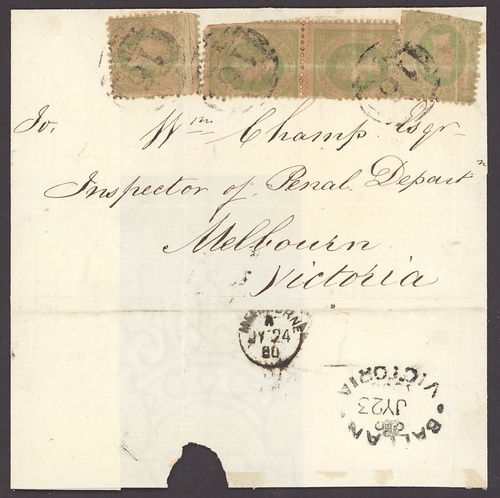 To,
Wm Champ Esqr
Inspector of Penal Departn
Melbourn
Victoria
MELBOURNE
A
JY 24
60
BALLAN
VICTORIA
JY 23